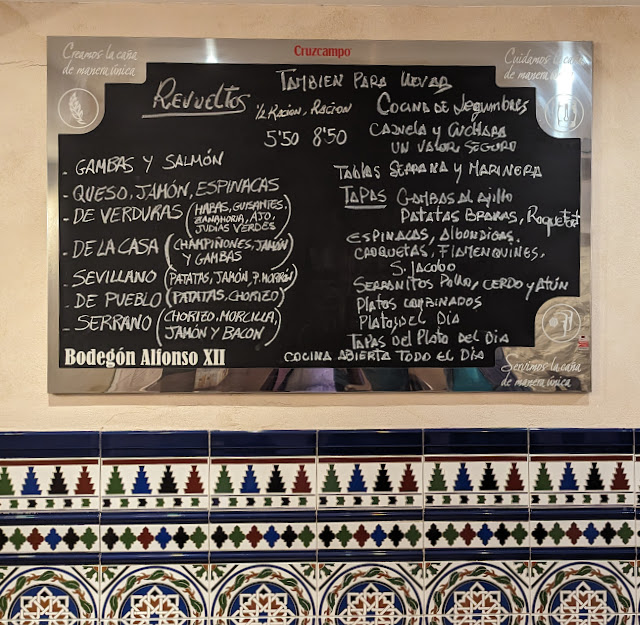 Creamos la caña
de manera única
Cruzcampo
Cuidamos la caña
de manera única
REVUELTOS
½ RACION, RACION
5'50 8'50
- GAMBAS Y SALMÓN
- QUESO, JAMÓN, ESPINACAS
- DE VERDURAS (HABAS, GUISANTES, ZANAHORIA, AJO, JUDÍAS VERDES)
- DE LA CASA (CHAMPIÑONES, JAMÓN Y GAMBAS)
- SEVILLANO (PATATAS, JAMÓN, P. MORRÓN)
- DE PUEBLO (PATATAS, CHORIZO)
- SERRANO (CHORIZO, MORCILLA, JAMÓN Y BACON)
Bodegón Alfonso XII
TAMBIEN PARA LLEVAR
COCINA DE LEGUMBRES
CAZUELA Y CUCHARA
UN VALOR SEGURO
TABLAS SERRANA Y MARINERA
TAPAS GAMBAS AL AJILLO
PATATAS BRAVAS, ROQUEFORT
ESPINACAS, ALBONDIGAS,
CROQUETAS, FLAMENQUINES,
S. JACOBO
SERRANITOS POLLO, CERDO Y ATÚN
PLATOS COMBINADOS
PLATOS DEL DIA
TAPAS DEL PLATO DEL DIA
COCINA ABIERTA TODO EL DIA
Servimos la caña
de manera única